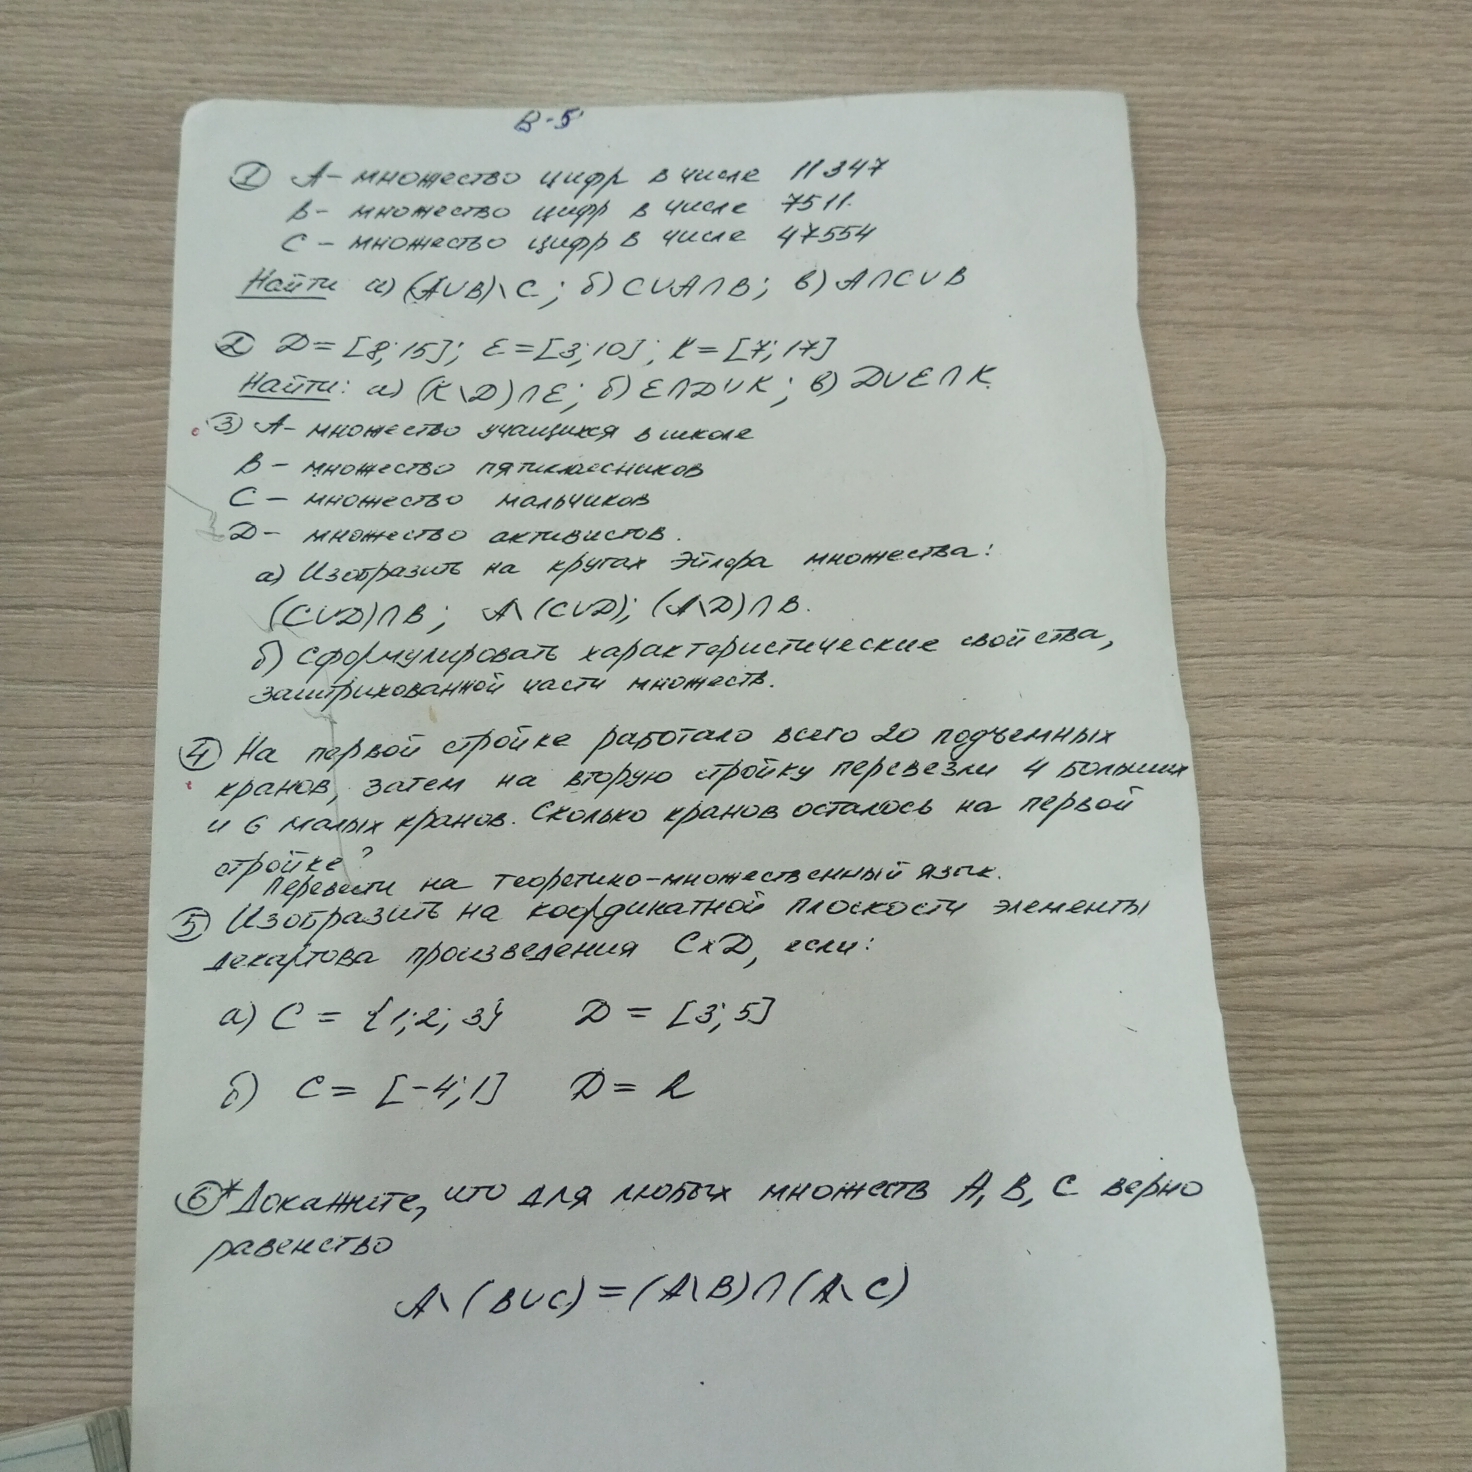 В-5
① А - множество цифр в числе 11347
В - множество цифр в числе 7511.
С - множество цифр в числе 47554
Найти а) (A∪B)\C; б) C∪A∩B; в) A∩C∪B
② D = [8; 15]; E = [3; 10]; K = [7; 17]
Найти: а) (K\D)∩E; б) E∩D∪K; в) D∪E∩K.
③ А - множество учащихся в школе
В - множество пятиклассников
С - множество мальчиков
D - множество активистов.
а) Изобразить на кругах Эйлера множества:
(C∪D)∩B; A\(C∪D); (A\D)∩B.
б) Сформулировать характеристические свойства,
заштрихованной части множеств.
④ На первой стройке работало всего 20 подъемных
кранов, затем на вторую стройку перевезли 4 больших
и 6 малых кранов. Сколько кранов осталось на первой
стройке?
Перевести на теоретико-множественный язык.
⑤ Изобразить на координатной плоскости элементы
декартова произведения C×D, если:
а) C = {1; 2; 3} D = [3; 5]
б) C = [-4; 1] D = R
⑥* Докажите, что для любых множеств A, B, C верно
равенство
A\(B∪C) = (A\B)∩(A\C)